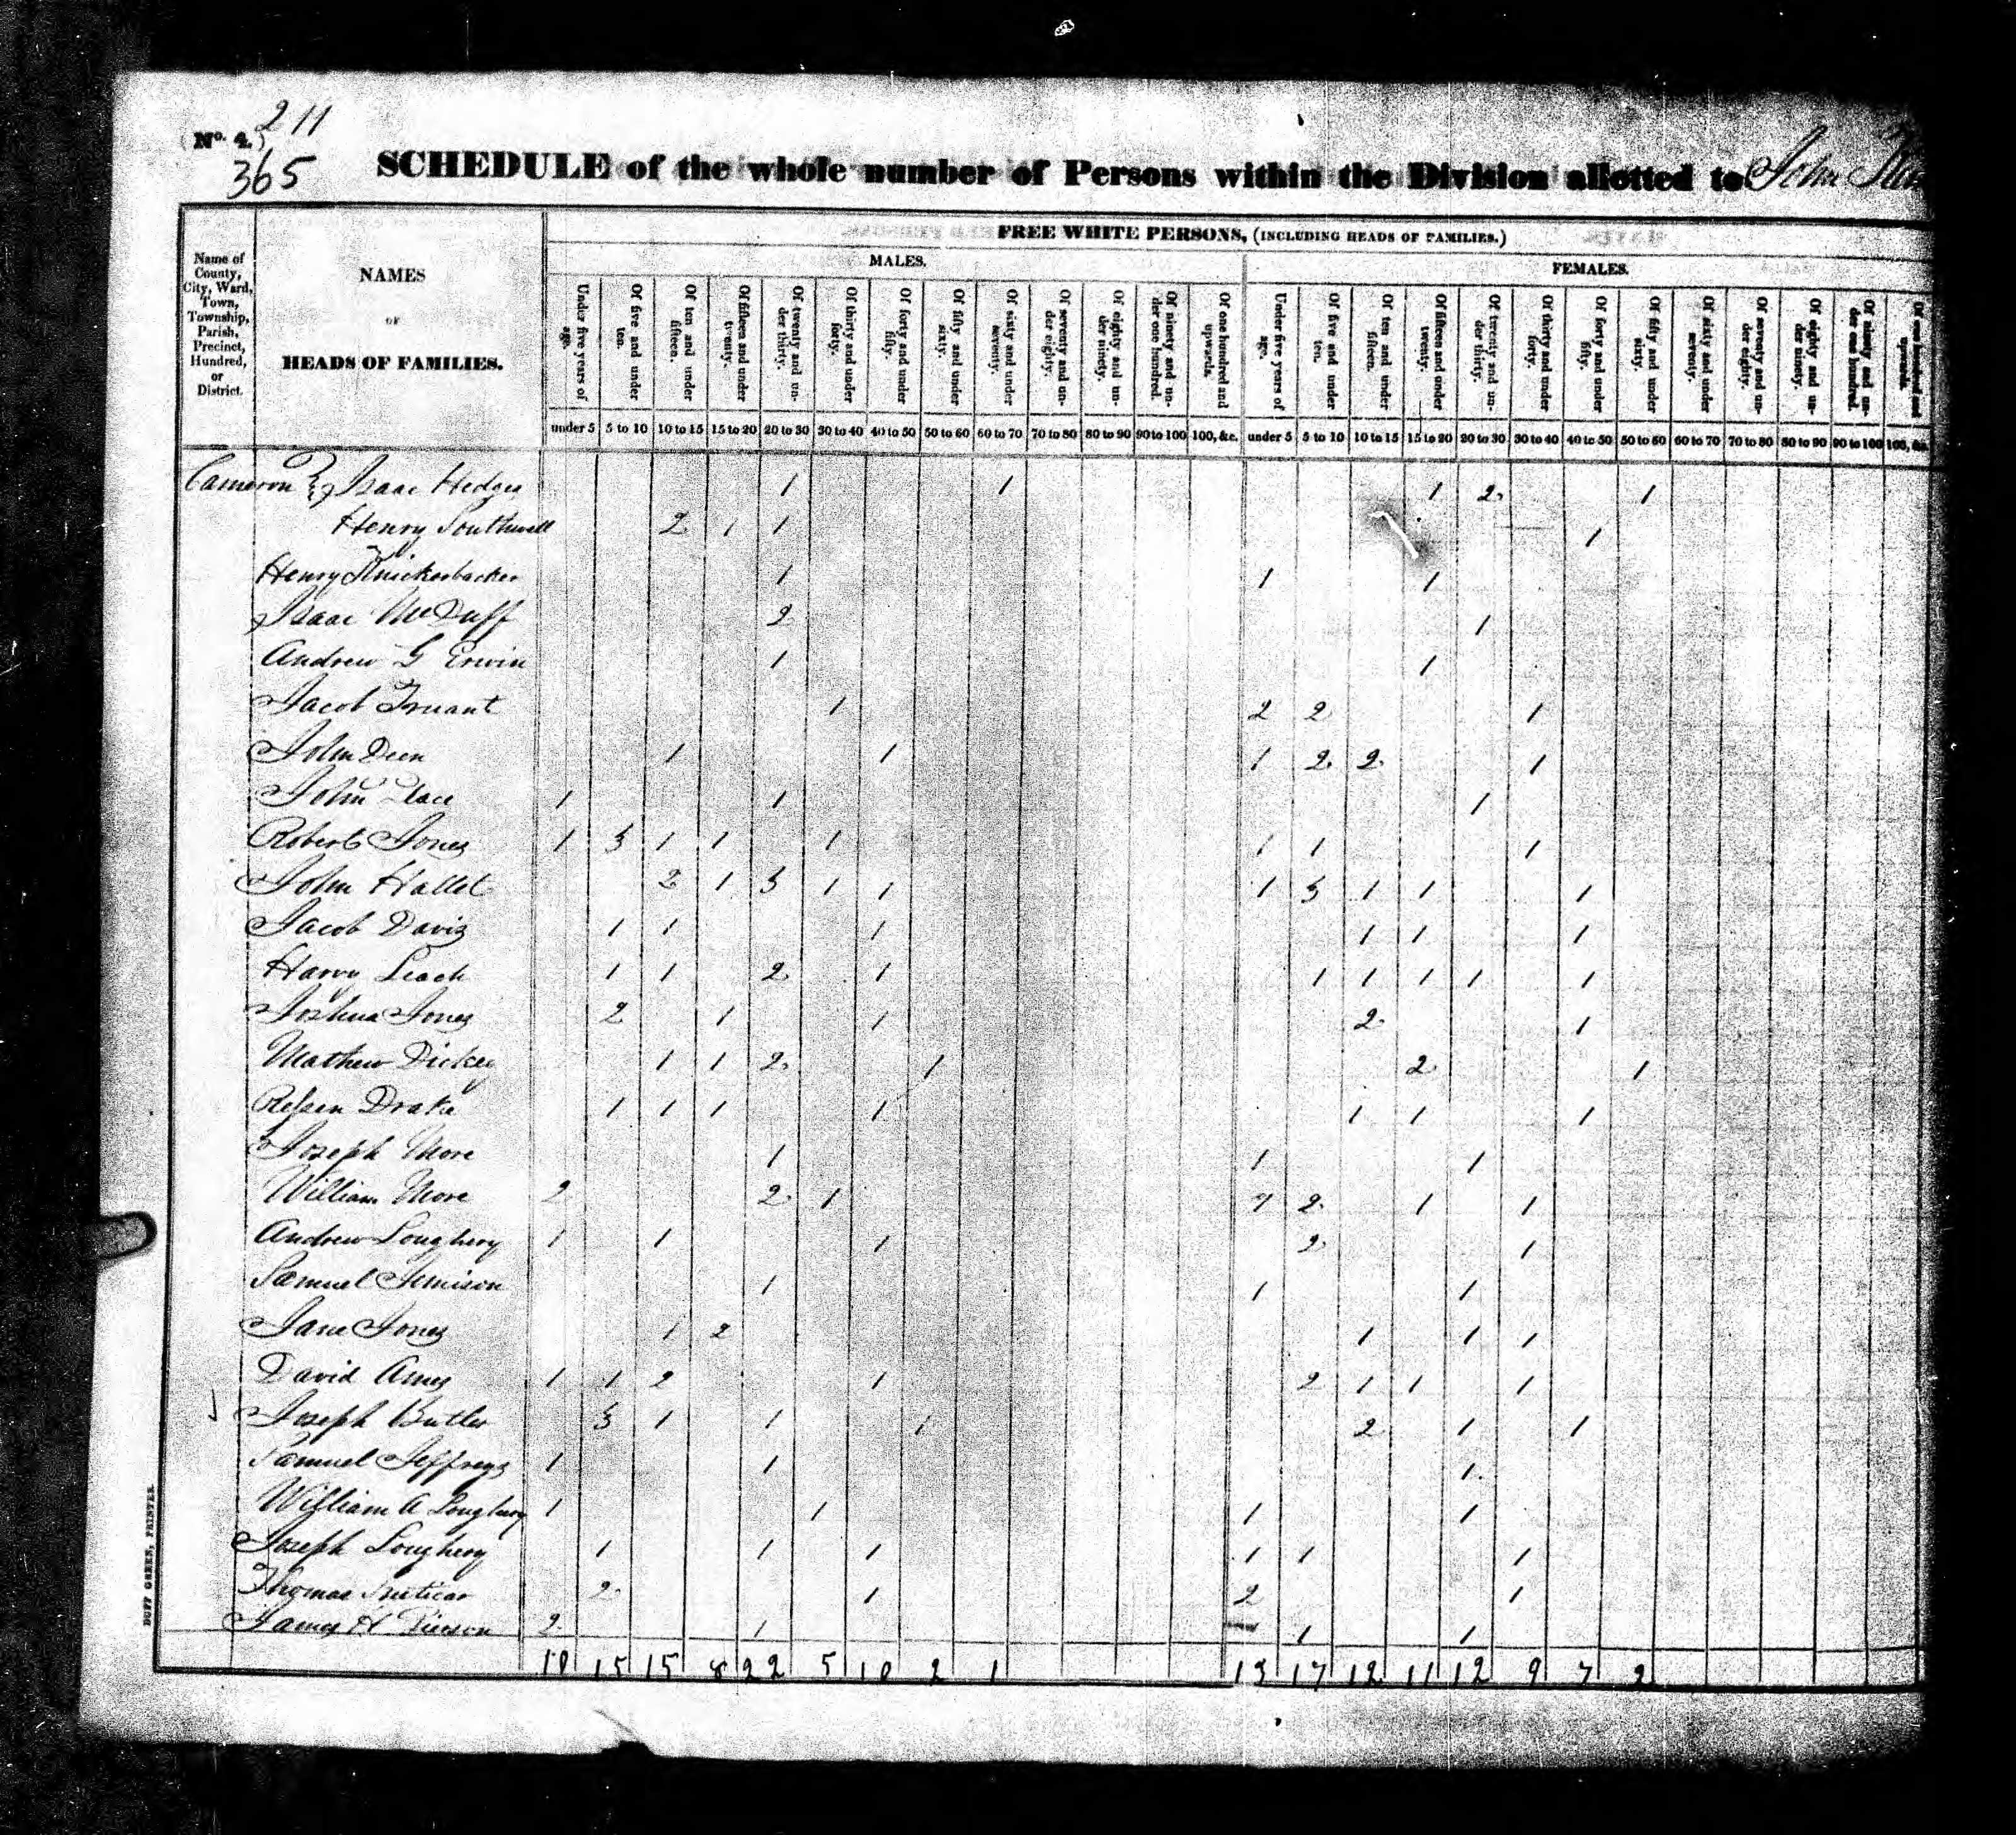 211
No. 4.)
365
SCHEDULE of the whole number of Persons within the Division allotted to John
FREE WHITE PERSONS, (INCLUDING HEADS OF FAMILIES.)
MALES. FEMALES.
Name of County, City, Ward, Town, Township, Parish, Precinct, Hundred, or District.
NAMES
OF
HEADS OF FAMILIES.
Under five years of age. Of five and under ten. Of ten and under fifteen. Of fifteen and under twenty. Of twenty and under thirty. Of thirty and under forty. Of forty and under fifty. Of fifty and under sixty. Of sixty and under seventy. Of seventy and under eighty. Of eighty and under ninety. Of ninety and under one hundred. Of one hundred and upwards. Under five years of age. Of five and under ten. Of ten and under fifteen. Of fifteen and under twenty. Of twenty and under thirty. Of thirty and under forty. Of forty and under fifty. Of fifty and under sixty. Of sixty and under seventy. Of seventy and under eighty. Of eighty and under ninety. Of ninety and under one hundred. Of one hundred and upwards.
under 5 5 to 10 10 to 15 15 to 20 20 to 30 30 to 40 40 to 50 50 to 60 60 to 70 70 to 80 80 to 90 90 to 100 100, &c. under 5 5 to 10 10 to 15 15 to 20 20 to 30 30 to 40 40 to 50 50 to 60 60 to 70 70 to 80 80 to 90 90 to 100 100, &c.
Cameron Isaac Hedges 1 1 1 2 1
Henry Southwell 2 1 1 1
Henry Knickerbacker 1 1 1
Isaac McDuff 2 1
Andrew G Erwin 1 1
Jacob Truant 1 2 2 1
John Deen 1 1 1 2 2 1
John Place 1 1 1
Robert Jones 1 3 1 1 1 1 1 1
John Hallet 2 1 3 1 1 1 3 1 1 1
Jacob Davis 1 1 1 1 1 1
Harvy Leach 1 1 2 1 1 1 1 1 1
Joshua Jones 2 1 1 2 1
Mathew Dickey 1 1 2 1 2 1
Drake 1 1 1 1 1 1 1
Joseph More 1 1 1
William More 2 2 1 2 1 1
Andrew Loughery 1 1 1 2 1
Samuel Jemison 1 1 1
Jane Jones 1 2 1 1 1
David Ames 1 1 2 1 2 1 1 1
Joseph Butler 3 1 1 1 2 1 1
Samuel Jeffreys 1 1 1
William A Loughery 1 1 1 1
Joseph Loughery 1 1 1 1 1 1
Thomas 2 1 2 1
James H Pierson 2 1 1 1
10 15 15 8 22 5 10 2 1 13 17 12 11 12 9 7 2
DUFF GREEN, PRINTER.